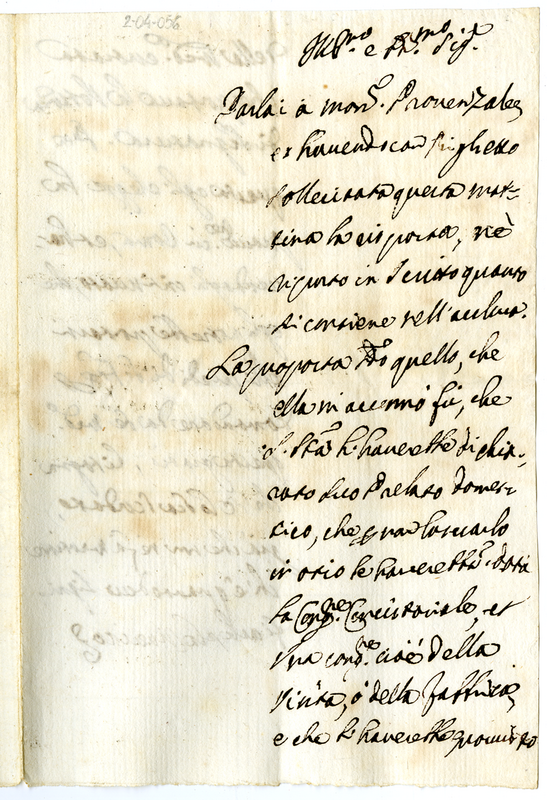 2-04-056
Ill.mo e R.mo Sig.r
Parlai a mons.r Provenzale
et havendo con viglietto
sollecitata questa mat-
tina la risposta, nè
riporto in scritto quanto
si contiene nell'acclusa.
La proposta di quello, che
ella m'accennò fù, che
S. S.tà l'haverebbe dichia-
rato suo Prelato Domes-
tico, che per non lasciarlo
in otio le haverebbe data
la Cong.ne Concistoriale, et
una cong.ne cioè della
Visita, ò della Fabbrica,
e che l'haverebbe provisto